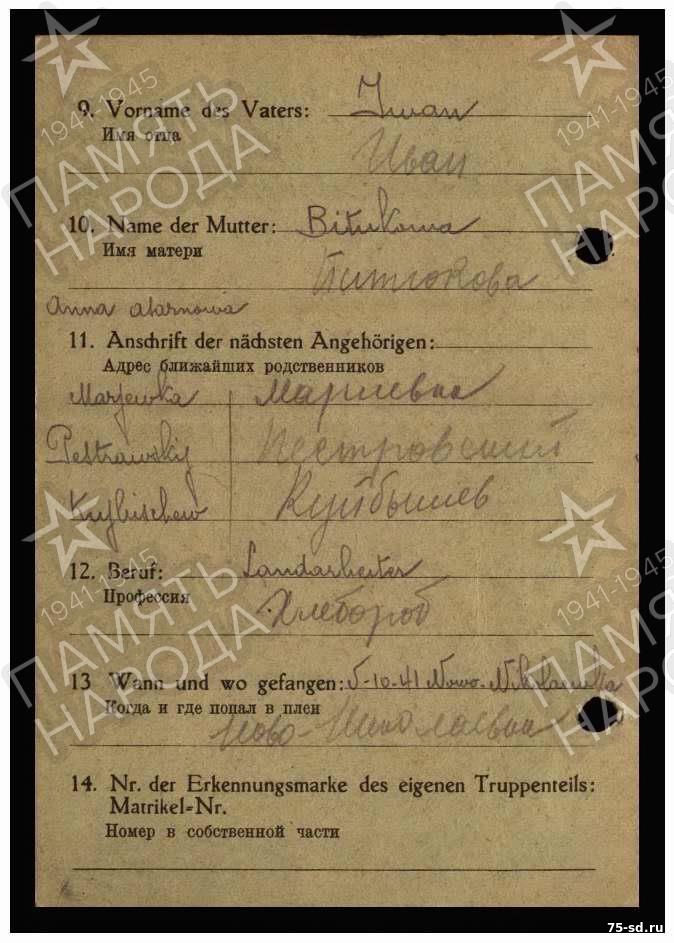 9. Vorname des Vaters: Iwan
Имя отца
Иван
10. Name der Mutter: Bitukowa
Имя матери
Питюкова
Anna
11. Anschrift der nächsten Angehörigen:
Адрес ближайших родственников
Marjewka Мариевка
Pestrawskij Пестровский
Kujbischew Куйбышев
12. Beruf: Landarbeiter
Профессия
Хлебороб
13 Wann und wo gefangen: 5-10-41 Nowo-Nikolaewka
Когда и где попал в плен
Ново-Николаевка
14. Nr. der Erkennungsmarke des eigenen Truppenteils:
Matrikel-Nr.
Номер в собственной части
1941-1945
ПАМЯТЬ
НАРОДА
1941-1945
ПАМЯТЬ
НАРОДА
1941-1945
ПАМЯТЬ
НАРОДА
1941-1945
ПАМЯТЬ
НАРОДА
75-sd.ru